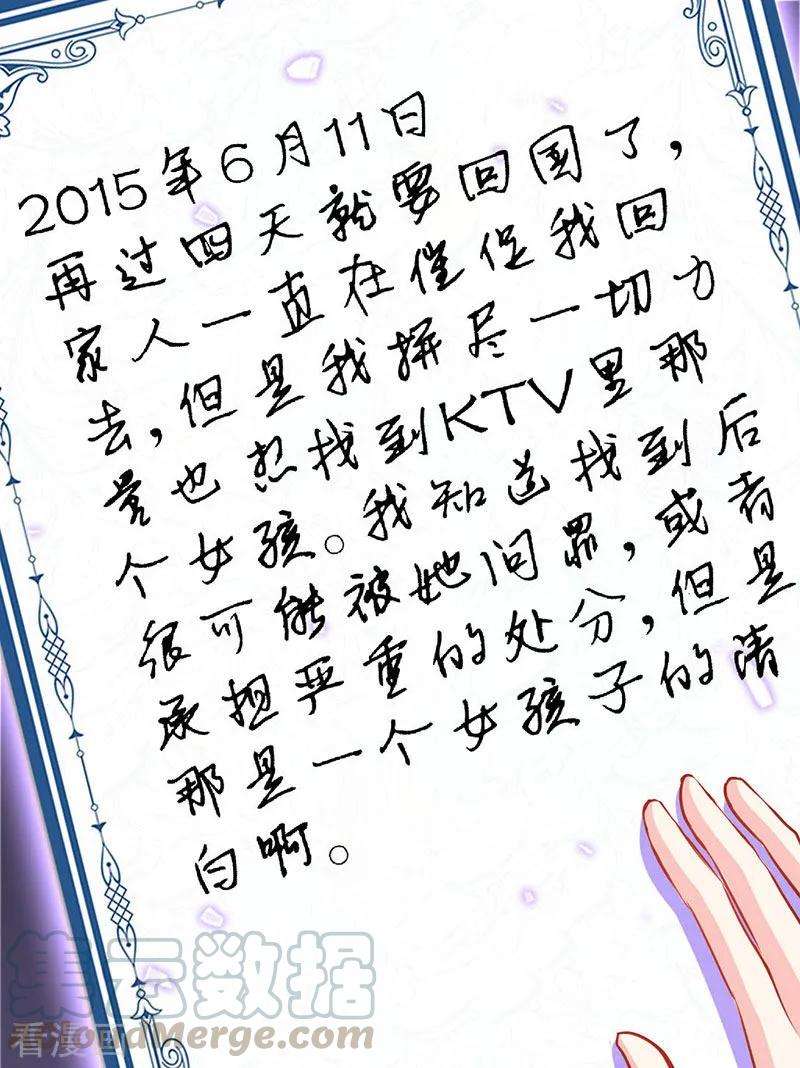 2015年6月11日
再过四天就要回国了,
家人一直在催促我回
去,但是我拼尽一切力
量也想找到KTV里那
个女孩。我知道找到后
很可能被她问罪,或者
承担严重的处分,但是
那是一个女孩子的清
白啊。
集云数据
CloudMerge.com
看漫画